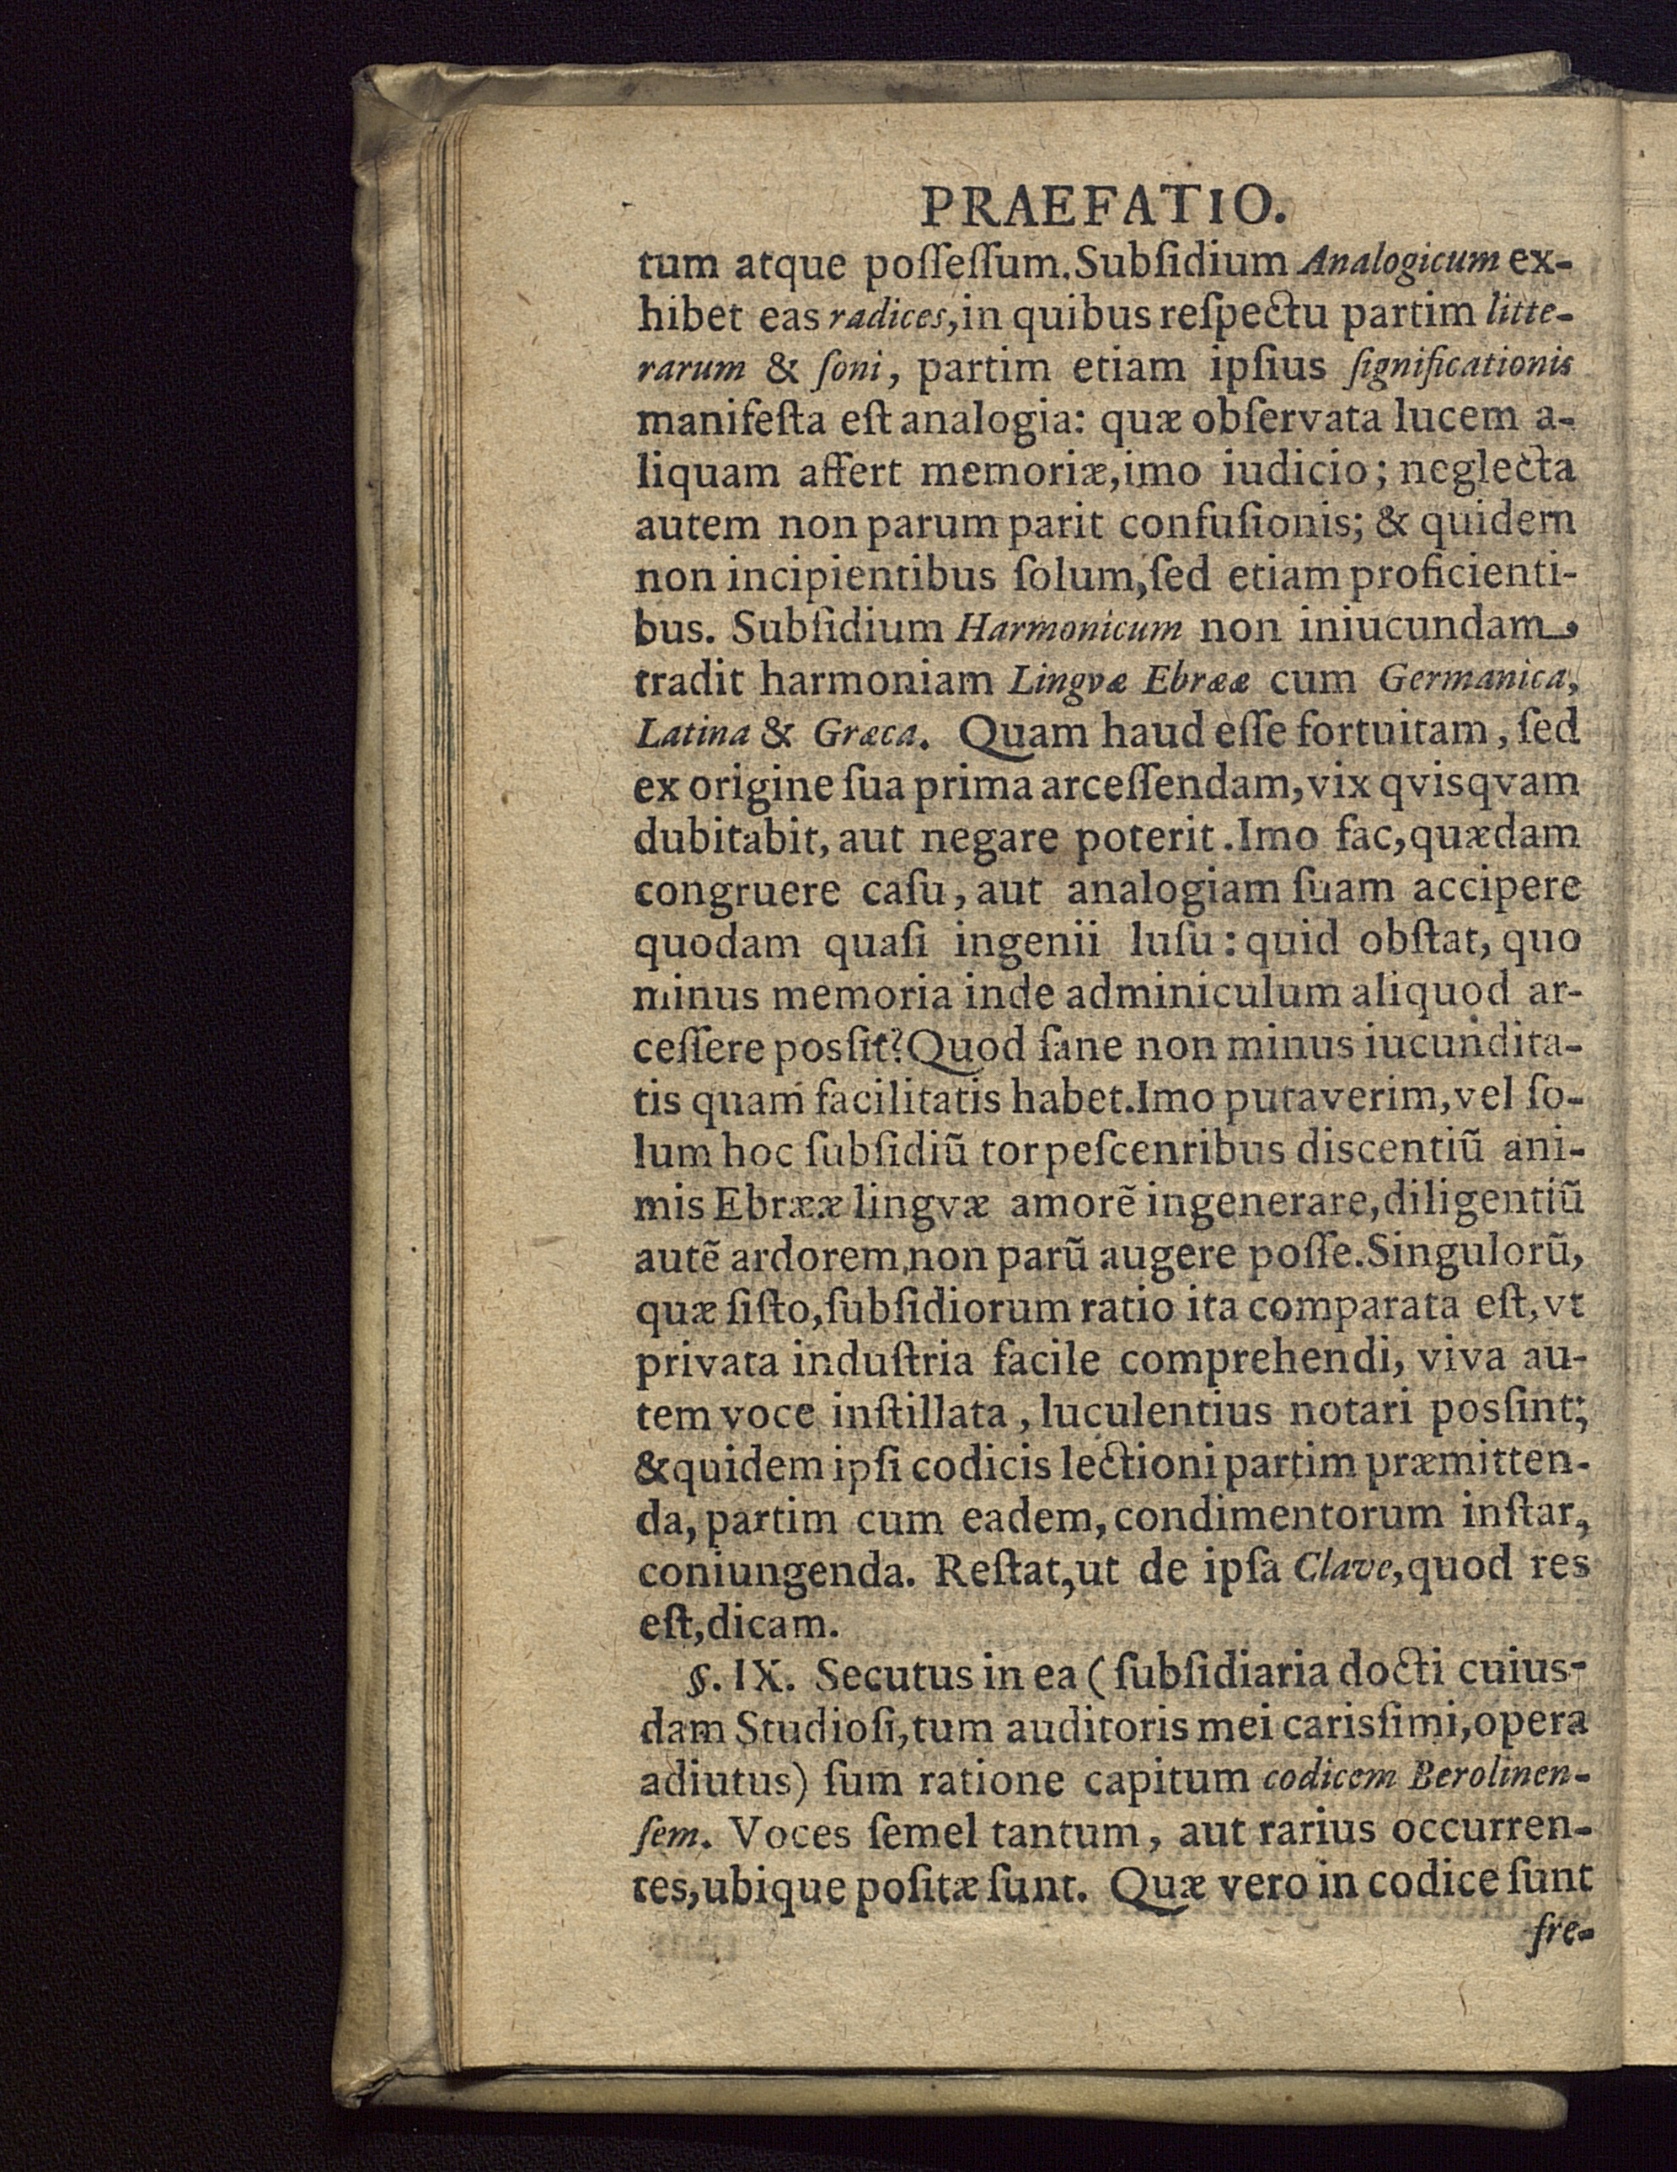 PRAEFATIO.
tum atque poſſeſſum. Subſidium Analogicum ex-
hibet eas radices, in quibus reſpectu partim litte-
rarum & ſoni, partim etiam ipſius ſignificationis
manifeſta eſt analogia: quæ obſervata lucem a-
liquam affert memoriæ, imo iudicio; neglecta
autem non parum parit confuſionis; & quidem
non incipientibus ſolum, ſed etiam proficienti-
bus. Subſidium Harmonicum non iniucundam,
tradit harmoniam Lingvæ Ebrææ cum Germanica,
Latina & Græca. Quam haud eſſe fortuitam, ſed
ex origine ſua prima arceſſendam, vix qvisqvam
dubitabit, aut negare poterit. Imo fac, quædam
congruere caſu, aut analogiam ſuam accipere
quodam quaſi ingenii luſu: quid obſtat, quo
minus memoria inde adminiculum aliquod ar-
ceſſere posſit? Quod ſane non minus iucundita-
tis quam facilitatis habet. Imo putaverim, vel ſo-
lum hoc ſubſidiũ torpeſcentibus discentiũ ani-
mis Ebrææ lingvæ amorẽ ingenerare, diligentiũ
autẽ ardorem, non parũ augere poſſe. Singulorũ,
quæ ſiſto, ſubſidiorum ratio ita comparata eſt, vt
privata induſtria facile comprehendi, viva au-
tem voce inſtillata, luculentius notari posſint;
& quidem ipſi codicis lectioni partim præmitten-
da, partim cum eadem, condimentorum inſtar,
coniungenda. Reſtat, ut de ipſa Clave, quod res
eſt, dicam.
§. IX. Secutus in ea (ſubſidiaria docti cuius-
dam Studioſi, tum auditoris mei carisſimi, opera
adiutus) ſum ratione capitum codicem Berolinen-
ſem. Voces ſemel tantum, aut rarius occurren-
tes, ubique poſitæ ſunt. Quæ vero in codice ſunt
fre-